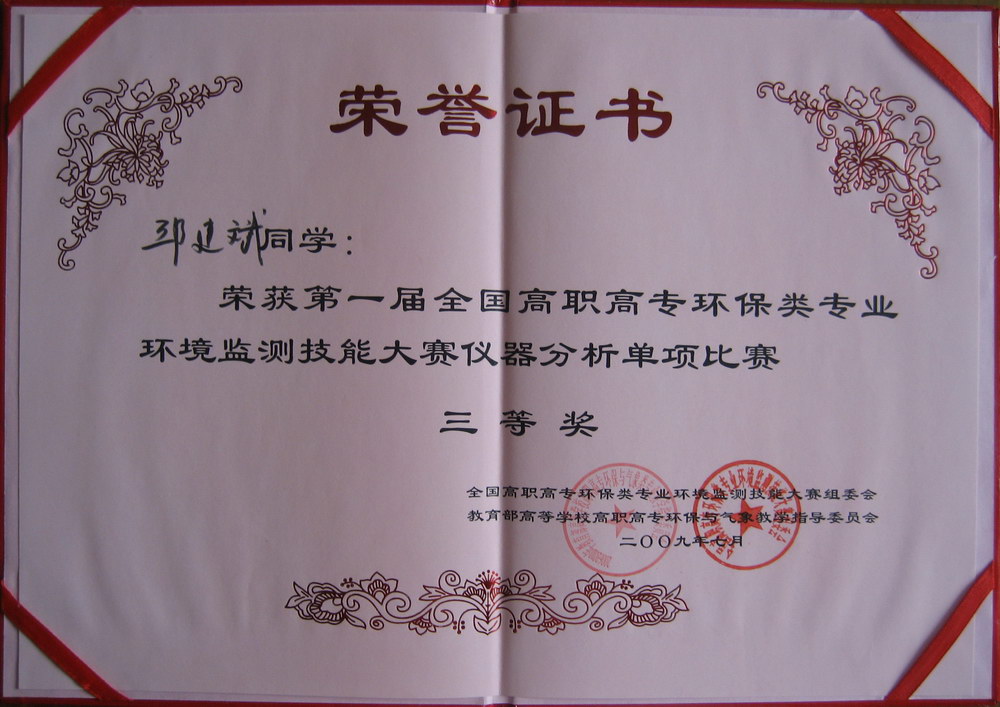 荣誉证书
邹建斌同学：
荣获第一届全国高职高专环保类专业
环境监测技能大赛仪器分析单项比赛
三等奖
全国高职高专环保类专业环境监测技能大赛组委会
教育部高等学校高职高专环保与气象教学指导委员会
二〇〇九年七月